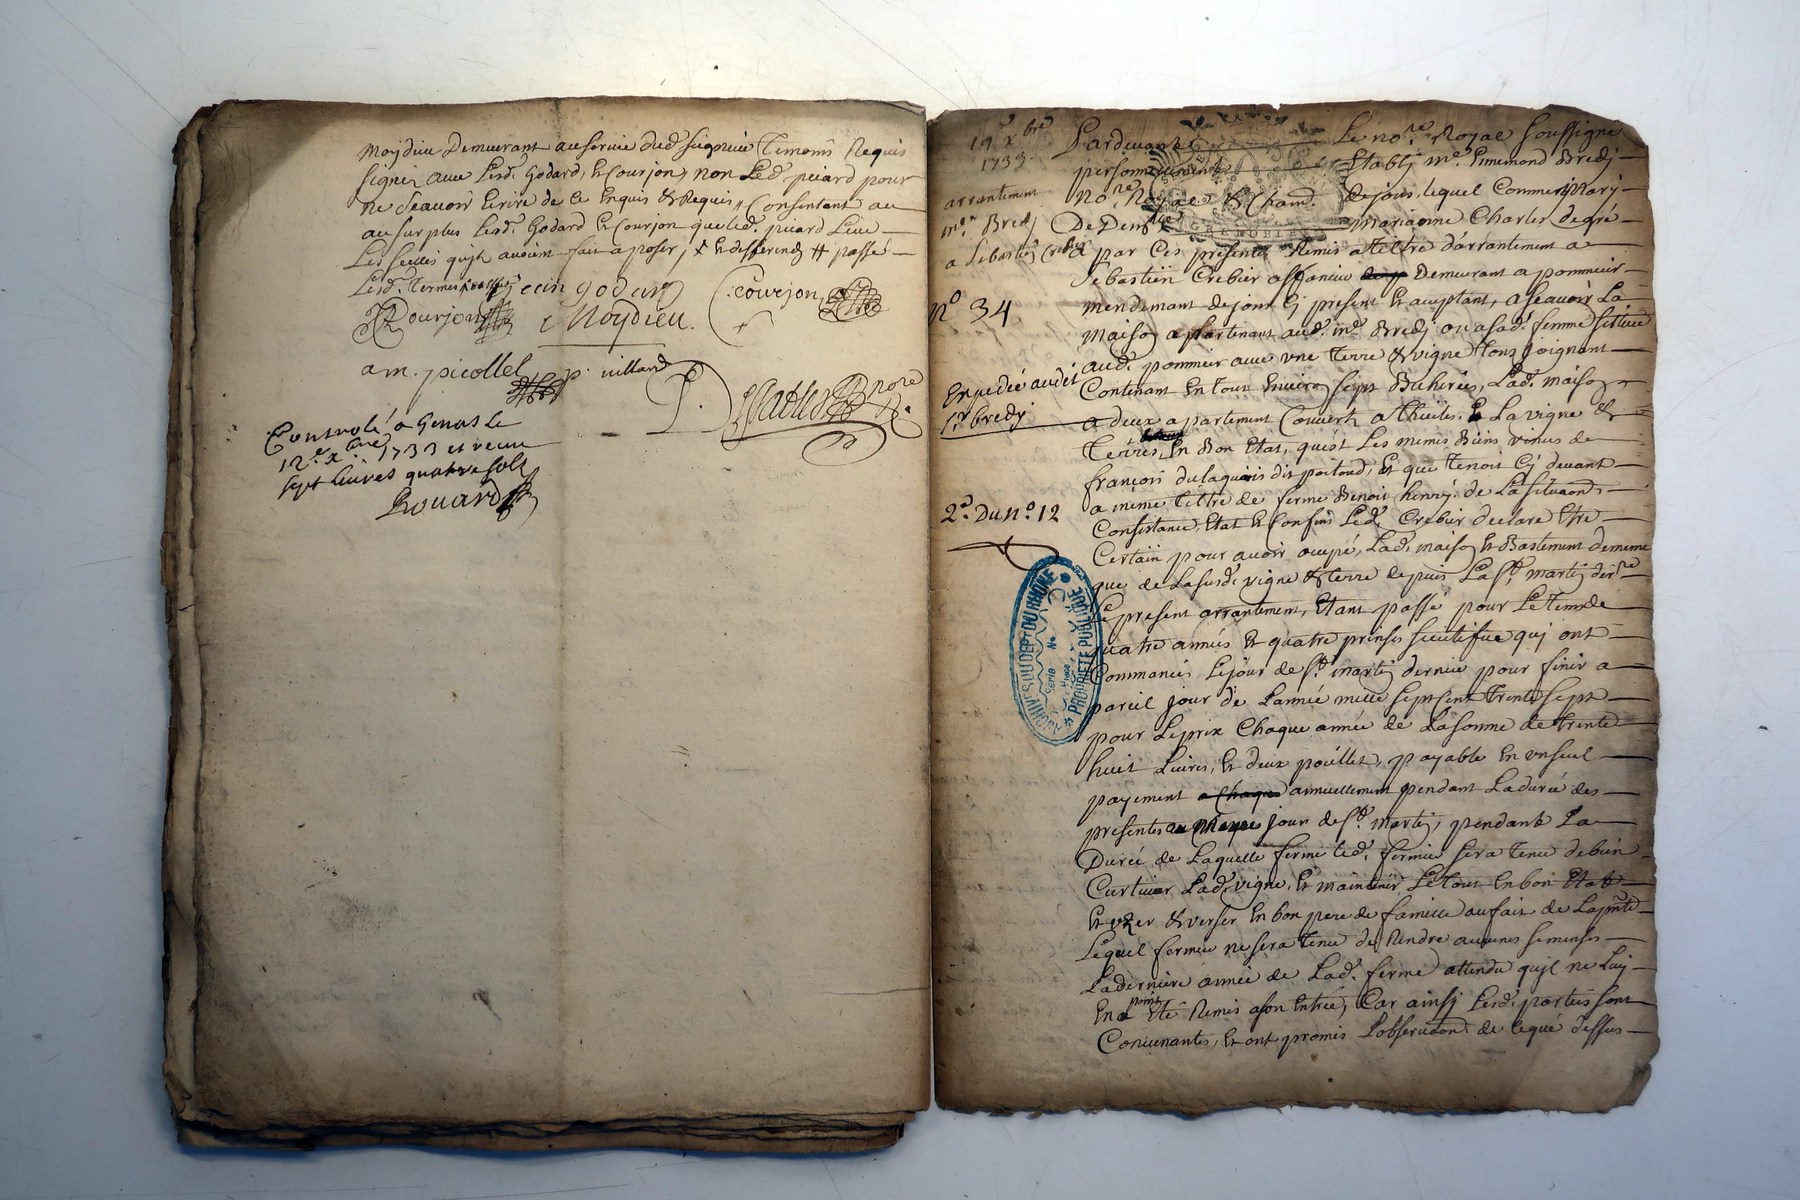 Moÿdieu Demeurant au service dud. seigneur Temoins Requis
signez avec Lesd. Godard, & Courjon, non Led. picard pour
ne sçauoir Ecrire de ce Enquis & Requis, Consentant au
au surplus Lesd. Godard & Courjon que led. picard Leue
Les scelles qu'ils auoient fait aposer, & Et differend # passé
Lesd. Termes
jean godard
Courjon
Courjon
Moydieu
a m. picollet
p. uillard
nore
Controlé a Genas le
12e xbre 1733 et receu
sept liures quatre sols
Rouard
19 xbre
1733
arrantement
me. Bredj
a Sebastien Crebier
n° 34
Expedié audit
sr bredj
2e. Du n° 12
Pardeuant Le nore Royal soussigné
personnellement Etablj me. Ennemond Bredj
nore Royal & Cham. de jons, lequel Comme Marj
De Demlle Marianne Charles de gré
a par Ces presentes Remis a tiltre d'arrantement a
Sebastien Crebier affaneur Demeurant a pommier
mendement de jons Cj present & aceptant, a sçauoir La
Maison apartenant aud. me. Bredj ou a sad. femme scituée
aud. pommier auec vne Terre & vigne Tout joignant
Contenant En tout Enuiron sept Bicherées, Lad. maison
a deux apartement Couuert a Thuiles, & La vigne &
Terres, En Bon Etat, qui est Les memes Biens venus de
françois dulaquais dit poitoud, & que Tenoit Cj deuant
a même tiltre de ferme Benoit henrj, de La situaon
Consistance, Etat & Confins Led. Crebier declare Etre
Certain pour auoir ocupé, Lad. maison & Bastement de meme
que de La susd. vigne & terre depuis La st. martin derre
Le present arrantement, Etant passé pour Le Tems de
quatre années & quatre prinses secutifue qui ont
Commancés Le jour de st. martin dernier pour finir a
pareil jour de L'année mille sept Cent Trente sept
pour Le prix Chaque année de La somme de trente
huit Liures, & deux poullet, payable En vn seul
payement a Chaque annuellement pendant La durée des
presentes jour de st. martin, pendant La
Durée de Laquelle ferme led. fermier sera Tenu de bien
Cultiuer Lad. vigne, & maintenir Le tout En bon Etat
Et vzer & verser En bon pere de famille au fait de La pnte
Lequel fermier ne sera Tenu de Rendre aucunes semenses
La derniere année de Lad. ferme attendu qu'jl ne Luj
En a point Eté Remis a son Entrée, Car ainsj Lesd. parties sont
Conuenantes, & ont promis L'obseruaon de ce que dessus
GRENOBLE
ARCHIVES DU DEPt DU RHÔNE
Série
No
PROPRIÉTÉ PUBLIQUE